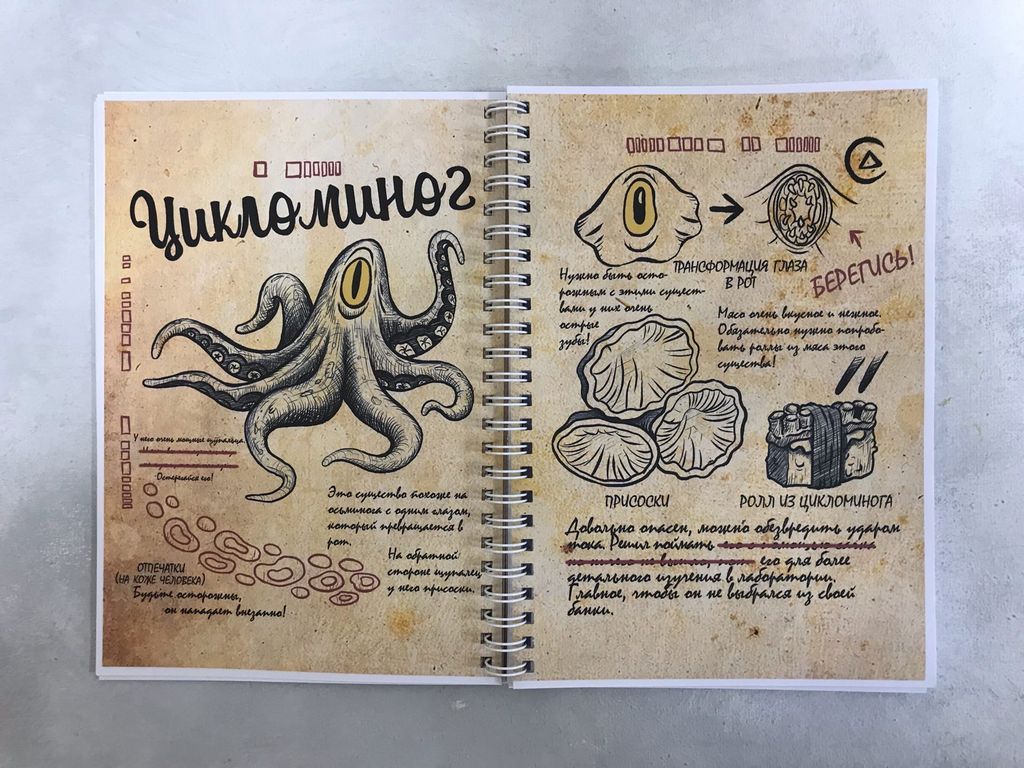 Цикломиног
У него очень мощные щупальца.
Остерегайся его!
Это существо похоже на
осьминога с одним глазом,
который превращается в
рот.
На обратной
стороне щупалец
у него присоски.
ОТПЕЧАТКИ
(НА КОЖЕ ЧЕЛОВЕКА)
Будьте осторожны,
он нападает внезапно!
ТРАНСФОРМАЦИЯ ГЛАЗА
В РОТ
БЕРЕГИСЬ!
Нужно быть осто-
рожным с этими сущест-
вами у них очень
острые
зубы!
Мясо очень вкусное и нежное.
Обязательно нужно попробо-
вать роллы из мяса этого
существа!
ПРИСОСКИ
РОЛЛ ИЗ ЦИКЛОМИНОГА
Довольно опасен, можно обезвредить ударом
тока. Решил поймать
его для более
детального изучения в лаборатории.
Главное, чтобы он не выбрался из своей
банки.